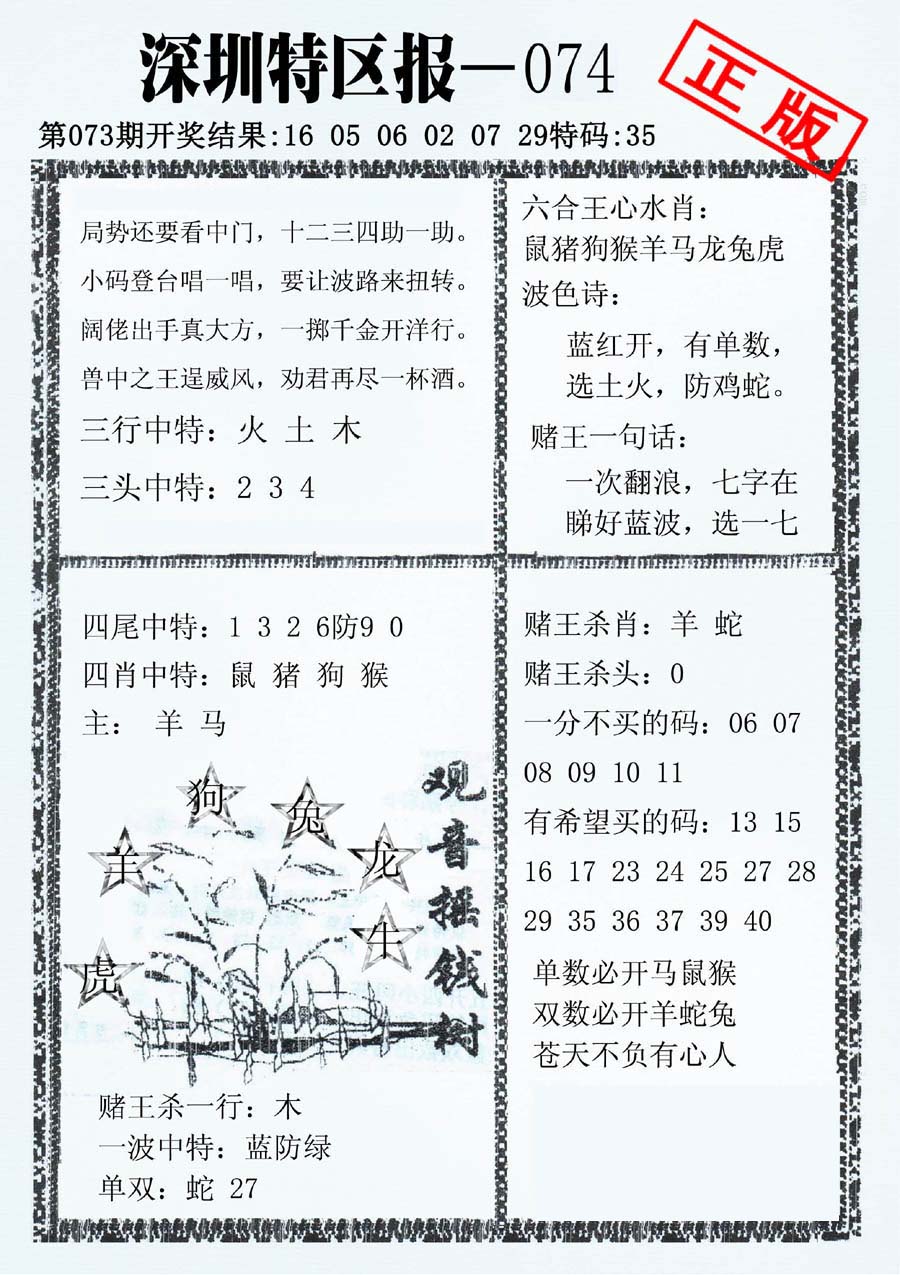 深圳特区报—074
正版
第073期开奖结果:16 05 06 02 07 29特码:35
局势还要看中门，十二三四助一助。
小码登台唱一唱，要让波路来扭转。
阔佬出手真大方，一掷千金开洋行。
兽中之王逞威风，劝君再尽一杯酒。
三行中特：火 土 木
三头中特：2 3 4
六合王心水肖：
鼠猪狗猴羊马龙兔虎
波色诗：
蓝红开，有单数，
选土火，防鸡蛇。
赌王一句话：
一次翻浪，七字在
睇好蓝波，选一七
四尾中特：1 3 2 6防9 0
四肖中特：鼠 猪 狗 猴
主： 羊 马
狗
兔
羊
龙
牛
虎
观音摇钱树
赌王杀一行：木
一波中特：蓝防绿
单双：蛇 27
赌王杀肖：羊 蛇
赌王杀头：0
一分不买的码：06 07
08 09 10 11
有希望买的码：13 15
16 17 23 24 25 27 28
29 35 36 37 39 40
单数必开马鼠猴
双数必开羊蛇兔
苍天不负有心人